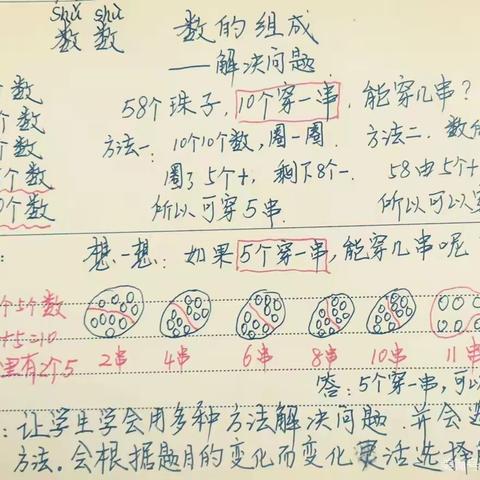 shǔ shù
数 数
数的组成
——解决问题
个数
58个珠子,10个穿一串,能穿几串?
个数
方法一:10个10个数,圈一圈.
方法二.数的
个数
圈了5个十,剩下8个一.
58由5个十
个数
所以可穿5串.
所以可以穿
个数
想一想:如果5个穿一串,能穿几串呢
个5个数
+5=10
里有2个5
2串 4串 6串 8串 10串 11串
答:5个穿一串,可以
:让学生学会用多种方法解决问题.并会选
方法.会根据题目的变化而变化灵活选择解